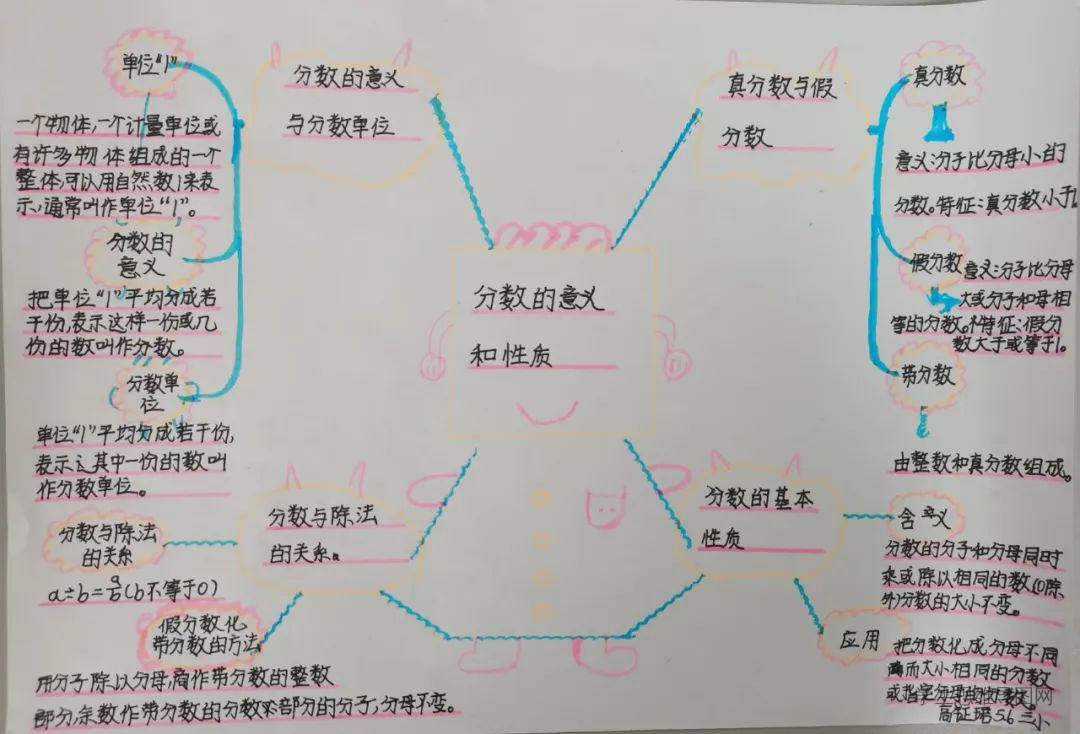 分数的意义
和性质
分数的意义
与分数单位
单位“1”
一个物体,一个计量单位或
有许多物体组成的一个
整体,可以用自然数1来表
示,通常叫作单位“1”。
分数的
意义
把单位“1”平均分成若
干份,表示这样一份或几
份的数叫作分数。
分数单
位
单位“1”平均分成若干份,
表示其中一份的数叫
作分数单位。
真分数与假
分数
真分数
意义:分子比分母小的
分数。特征:真分数小于1。
假分数
意义:分子比分母
大或分子和母相
等的分数。特征:假分
数大于或等于1。
带分数
由整数和真分数组成。
分数与除法
的关系。
分数与除法
的关系
a÷b=a/b(b不等于0)
假分数化
带分数的方法
用分子除以分母,商作带分数的整数
部分,余数作带分数的分数部分的分子,分母不变。
分数的基本
性质
含义
分数的分子和分母同时
乘或除以相同的数(0除
外)分数的大小不变。
应用
把分数化成分母不同
而大小相同的分数
或指定分母的分数。
56 三小